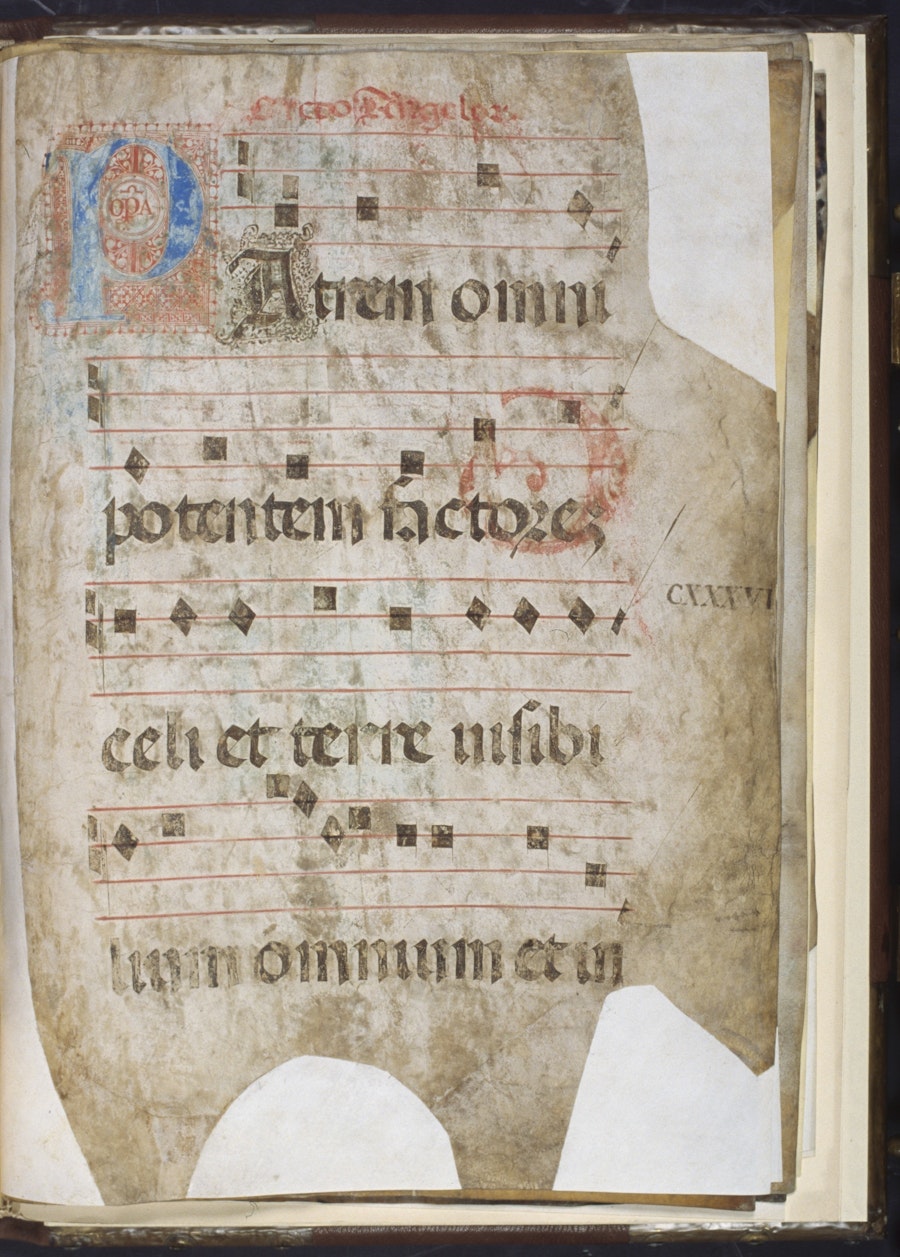 Angelor
P
OPA
Atrem omni
potentem factores
celi et terre uisibi
CXXXVI
lium omnium et in